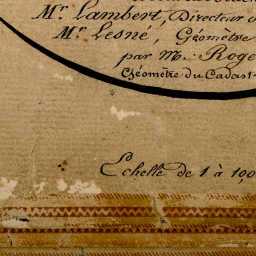 Mr. Lambert, Directeur
Mr. Lesné, Géomètre
par M. Roge
Géomètre du Cadast
Echelle de 1 à 10,0